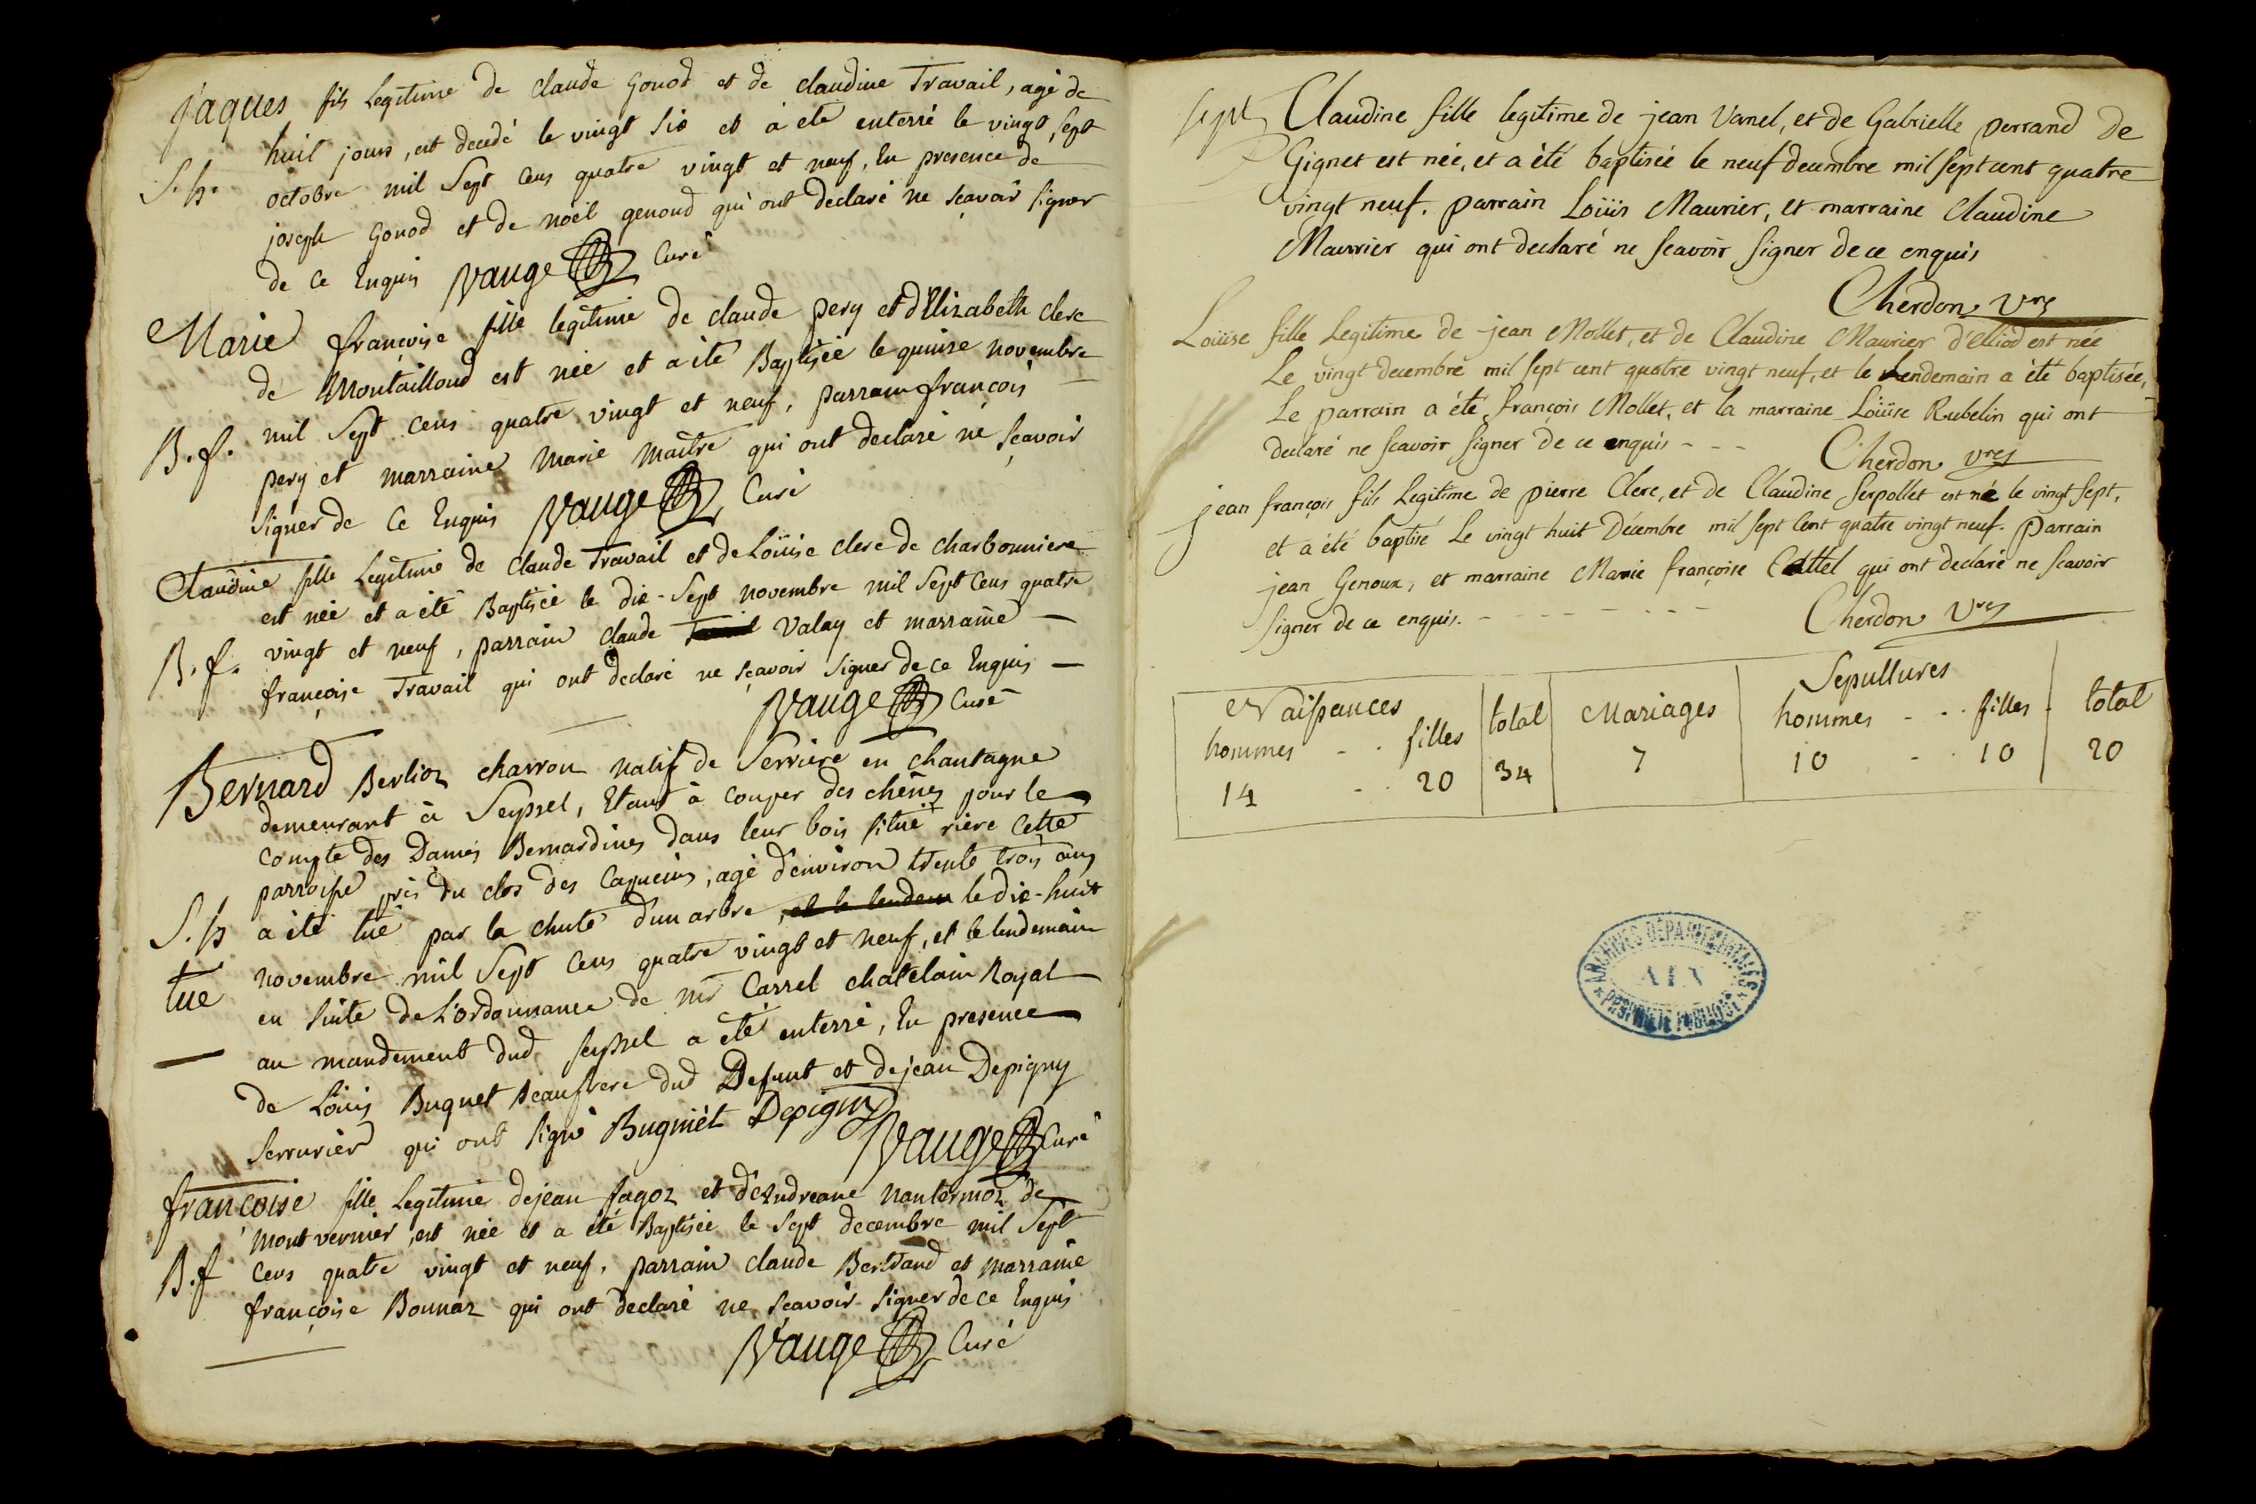 jaques fils Legitime de claude Gonod et de claudine Travail, agé de
huit jours, est decedé le vingt six et a été enterré le vingt sept
S. h. octobre mil Sept cens quatre vingt et neuf, En presence de
joseph Gonod et de noël genoud qui ont declaré ne sçavoir signer
de ce Enquis Vauge Curé
Marie françoise fille legitime de claude pery et d'Elizabeth clerc
de Montailloud est née et a été Baptisée le quinze novembre
B. f. mil Sept cens quatre vingt et neuf, parrain françois
pery et marraine Marie Maître qui ont declaré ne sçavoir
signer de ce Enquis Vauge Curé
Claudine fille Legitime de Claude Travail et de Loüise clerc de charbonniere
est née et a été Baptisée le dix-Sept novembre mil Sept cens quatre
B. f. vingt et neuf, parrain claude Valay et marraine
françoise Travail qui ont declaré ne sçavoir signer de ce Enquis
Vauge Curé
Bernard Berlioz charron natif de Serriere en chautagne
demeurant à Seyssel, Etant à couper des chênes pour le
compte des Dames Bernardines dans leur bois situé riere cette
parroisse près du clos des Capucins, agé d'environ trente trois ans
S. h a été tué par la chute d'un arbre, et le lendem le dix-huit
tué novembre mil Sept cens quatre vingt et neuf, et le lendemain
en suite de L'ordonnance de mr Carrel chatelain Royal
au mandement dud. seyssel a été enterré, En presence
de Loüis Buguet Beaufrere dud Defunt et de jean Depigny
Serrurier qui ont signé Bugniet Depigny
Vauge Curé
françoise fille Legitime de jean fagoz et d'Andreane Nantermoz de
mont vernier, est née et a été Baptisée le Sept decembre mil Sept
B. f cens quatre vingt et neuf, parrain claude Bertrand et marraine
françoise Bonnaz qui ont declaré ne sçavoir signer de ce Enquis
Vauge Curé
sept Claudine fille legitime de jean Vanel, et de Gabrielle perrand de
Gignet est née, et a été baptisée le neuf decembre mil sept cent quatre
vingt neuf. parrain Loüis Maurier, et marraine Claudine
Maurier qui ont declaré ne scavoir signer de ce enquis
Cherdon vres
Loüise fille Legitime de jean Mollet, et de Claudine Maurier d'Elliod est née
Le vingt decembre mil sept cent quatre vingt neuf, et le lendemain a été baptisée,
Le parrain a été françois Mollet, et la marraine Loüise Rubelin qui ont
declaré ne scavoir signer de ce enquis - - -
Cherdon vres
jean françois fils Legitime de pierre Clerc, et de Claudine Serpollet est né le vingt sept,
et a été baptisé Le vingt huit Décembre mil sept Cent quatre vingt neuf. parrain
jean Genoux, et marraine Marie françoise Cattel qui ont declaré ne scavoir
signer de ce enquis. - - - - - - -
Cherdon vres
Naissances total Mariages Sepultures total
hommes - - filles hommes - - filles
14 - - 20 34 7 10 - - 10 20
ARCHIVES DÉPARTEMENTALES
AIN
PROPRIÉTÉ PUBLIQUE